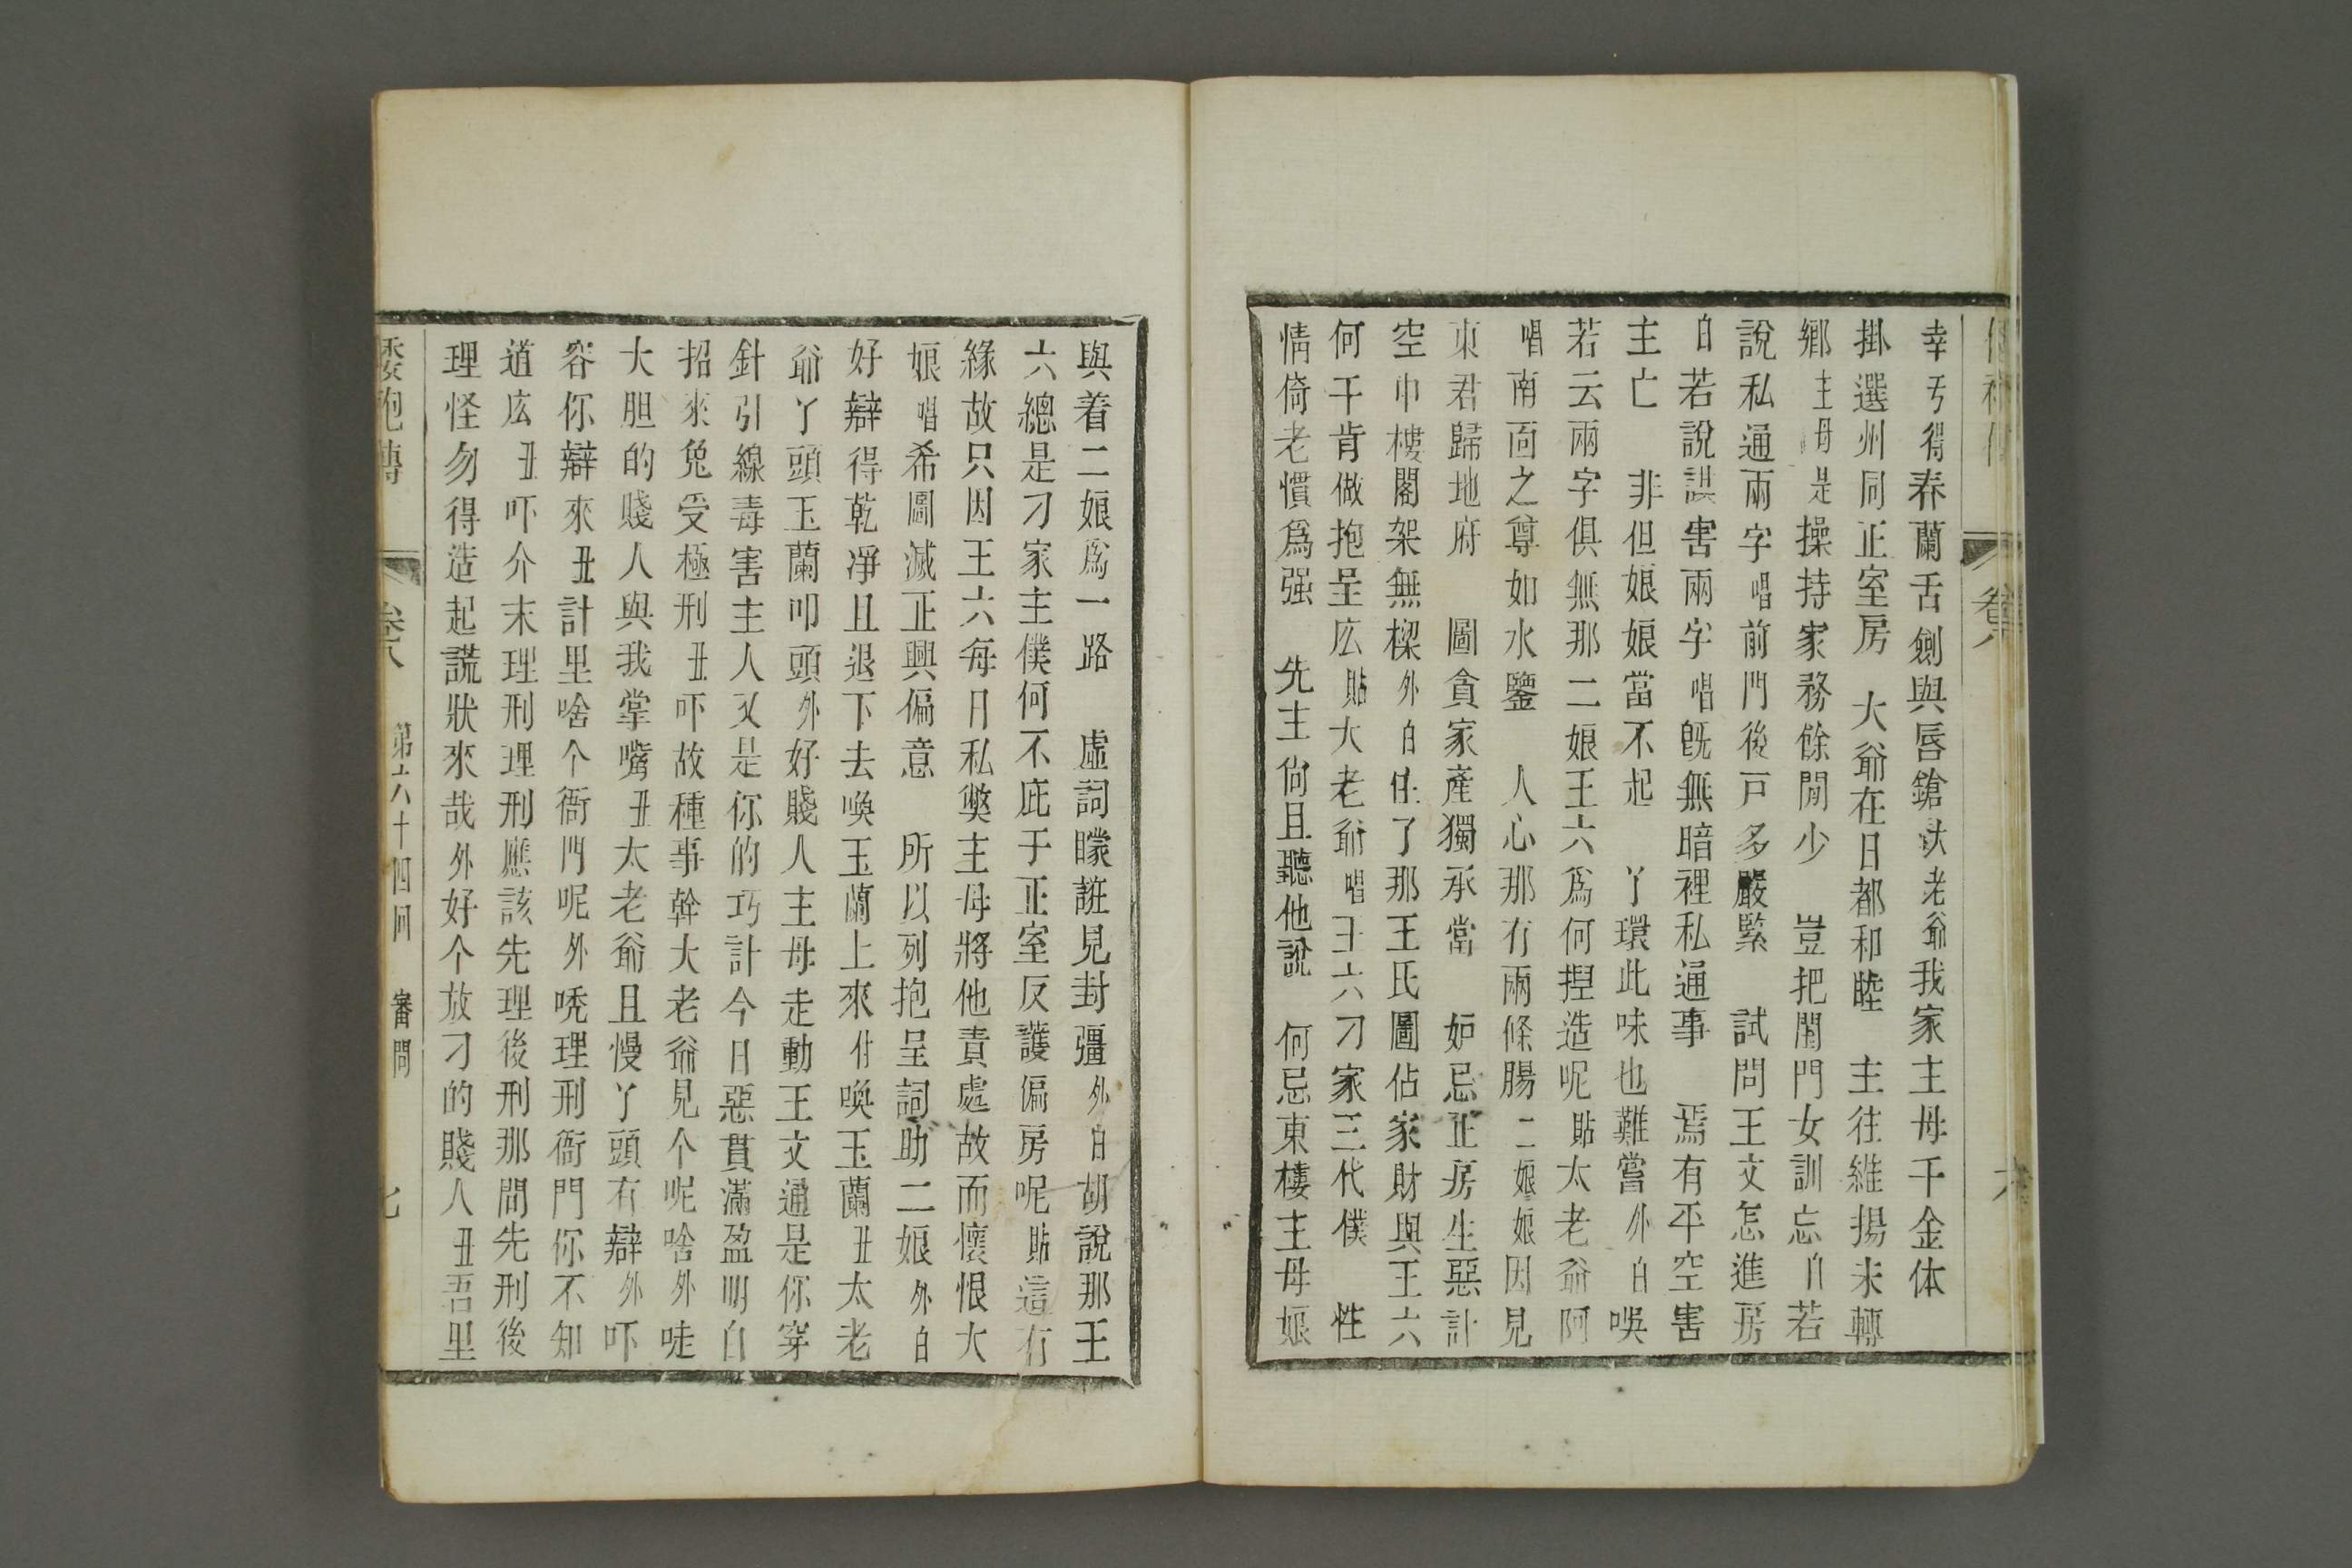 幸丐得春蘭舌劍與唇鎗	老爺我家主母千金体
掛選州同正室房　大爺在日都和睦　主往維揚未轉
鄉主母是操持家務餘閒少　豈把閨門女訓忘白若
說私通兩字唱前門後戸多嚴緊　試問王文怎進房
白若說謀害兩字唱旣無暗裡私通事　焉有平空害
主亡　非但娘娘當不起　丫環此味也難當外白唤
若云兩字俱無那二娘王六爲何揑造呢貼太老爺阿
唱南面之尊如水鑒　人心那有兩條腸二娘娘因見
東君歸地府　圖貪家產獨承當　妒忌正房生惡計
空中樓閣架無樑外白住了那王氏圖佔家財與王六
何干肯做抱呈庅貼大老爺唱王六刁家三代僕　性
情倚老慣爲强　先主尙且聽他說　何忌東樓主母娘
與着二娘爲一路　虛詞矇誑見封疆外白胡說那王
六總是刁家主僕何不庇于正室反護偏房呢貼這有
緣故只因王六每日私獘主母將他責處故而懷恨大
娘唱希圖滅正興偏意　所以列抱呈詞助二娘外白
好辯得乾凈且退下去喚玉蘭上來付喚玉蘭丑太老
爺丫頭玉蘭叩頭外好賤人主母走動王文通是你穿
針引線毒害主人又是你的巧計今日惡貫滿盈明白
招來免受極刑丑吓故種事幹大老爺見个呢啥外唗
大胆的賤人與我掌嘴丑太老爺且慢丫頭有辯外吓
容你辯來丑計里啥个衙門呢外唗理刑衙門你不知
道庅丑吓介末理刑理刑應該先理後刑那間先刑後
理怪勿得造起謊狀來哉外好个放刁的賤人丑吾里
倭袍傳　卷八　第六十四回　審問　七